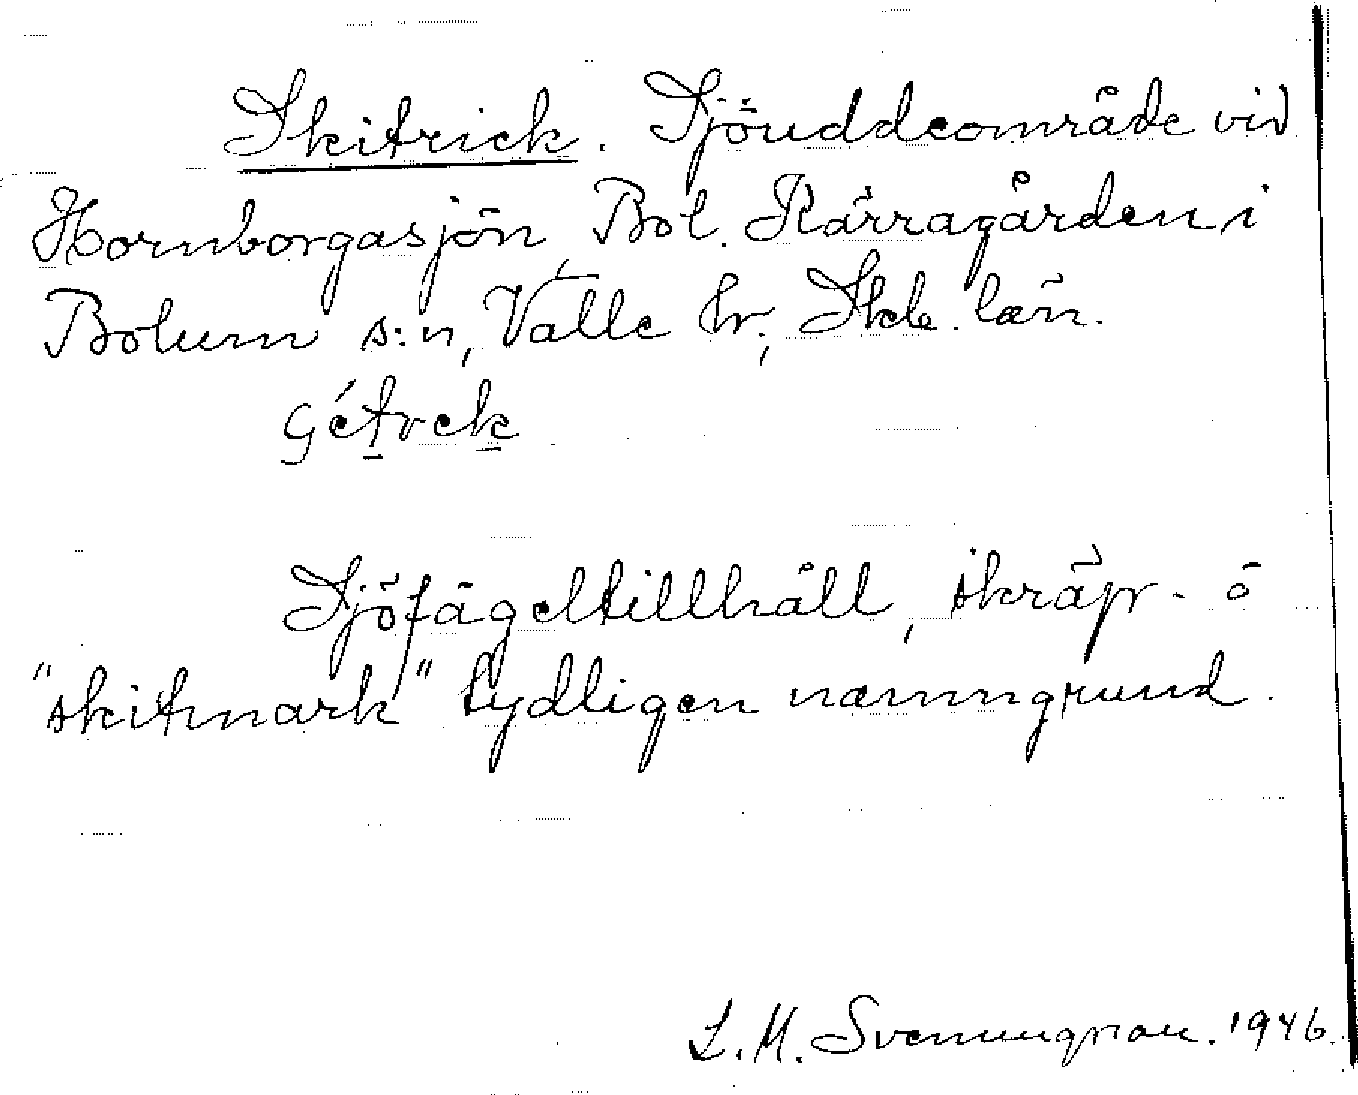 Skitrick. Sjöuddeområde vid
Hornborgasjön, Bol. Kärragården i
Bolum s:n, Valle hr; Skb. län.
Sjöfågeltillhåll, skräp- o
"skitmark" tydligen namngrund.
L. M. Svenungsson. 1946.